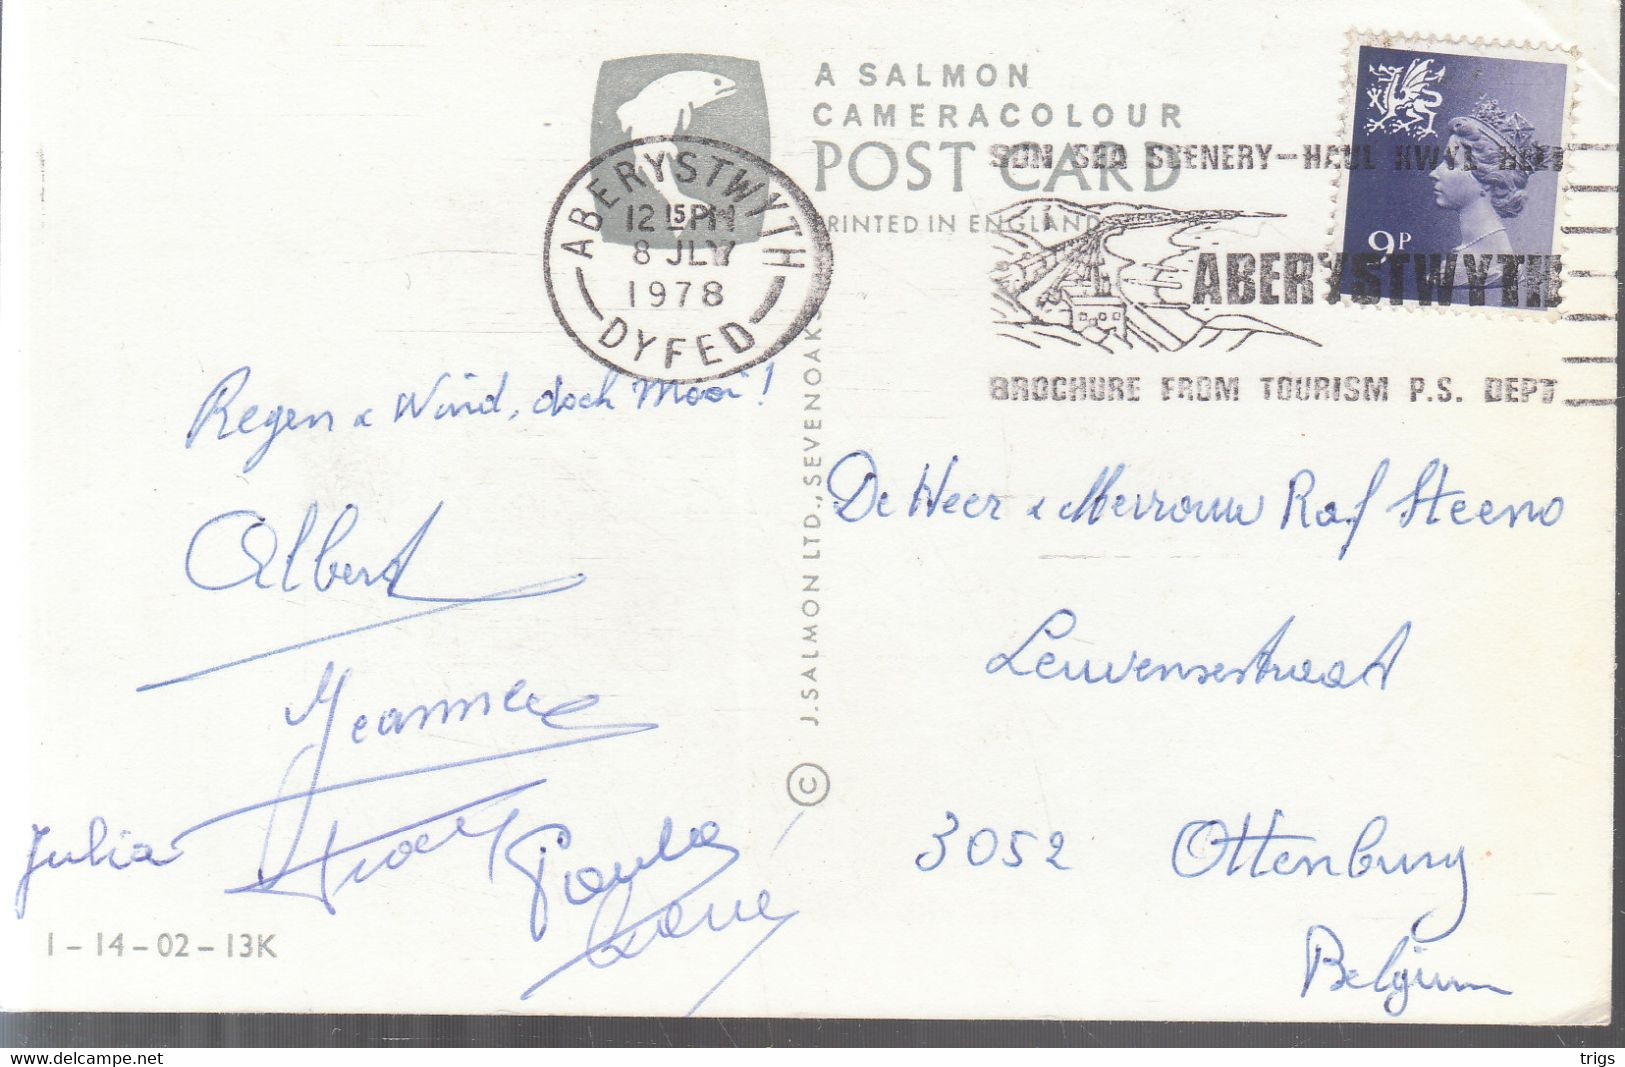 A SALMON
CAMERACOLOUR
POST CARD
PRINTED IN ENGLAND
ABERYSTWYTH
12 15 PM
8 JLY
1978
DYFED
SUN SEA SCENERY-HAUL HWYL HELI
ABERYSTWYTH
BROCHURE FROM TOURISM P.S. DEPT
9P
Regen & Wind, doch Mooi!
Albert
Jeannine
Julia
Paula
J. SALMON LTD., SEVENOAKS
©
De Heer & Mevrouw Raf Steeno
Leuvensestraat
3052 Ottenburg
Belgium
1-14-02-13K
www.delcampe.net
trigs